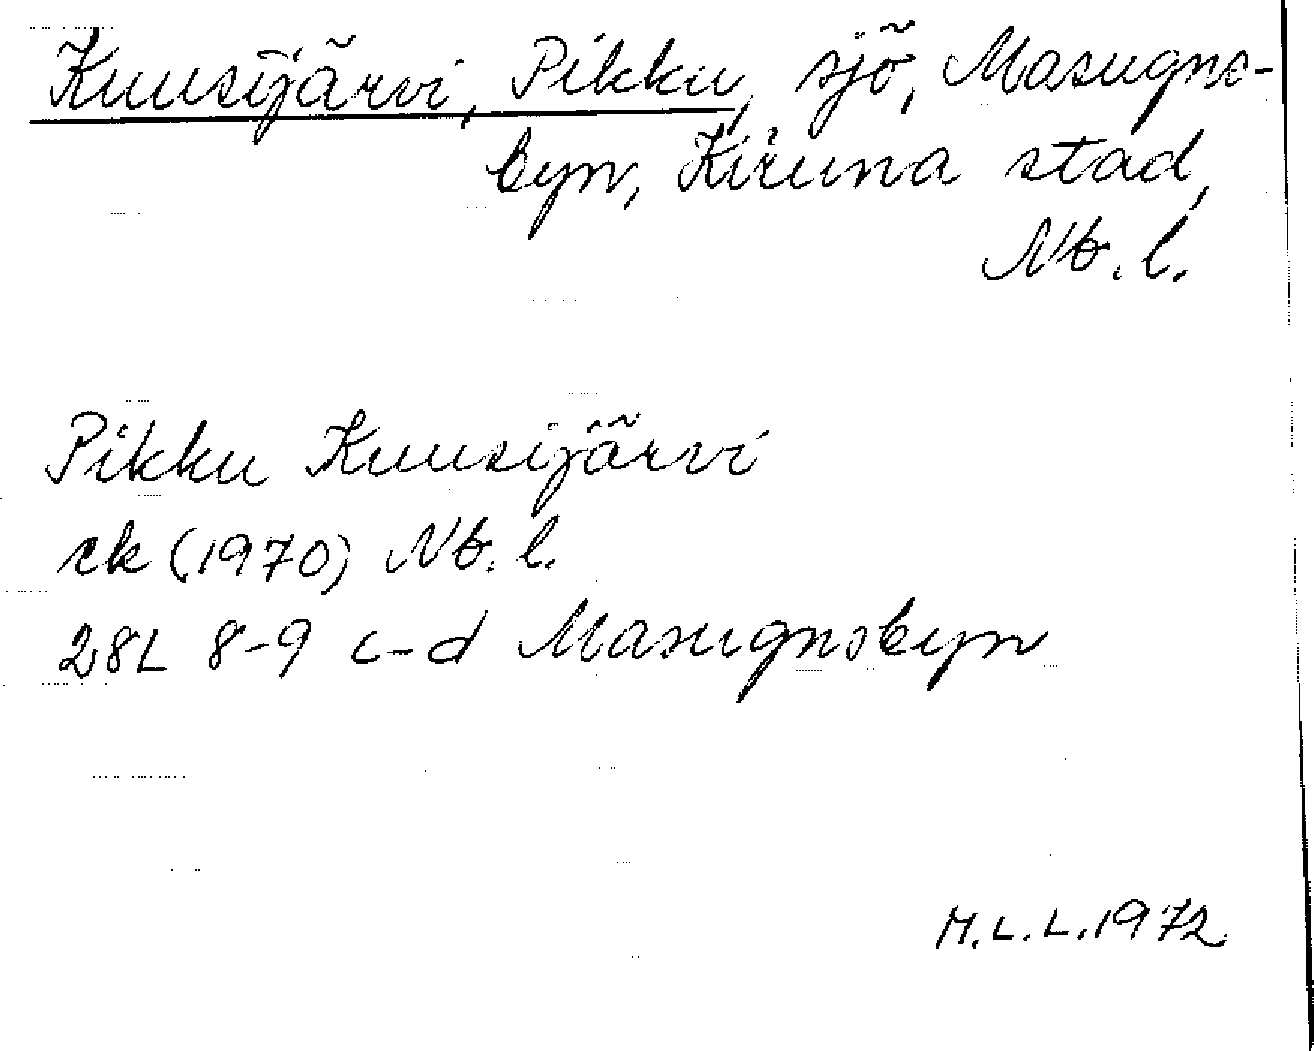 Kuusijärvi, Pikku, sjö, Masugns-
byn, Kiruna stad,
Nb. l.
Pikku Kuusijärvi
rk (1970) Nb. l.
28L 8-9 c-d Masugnsbyn
M.L.L. 1972